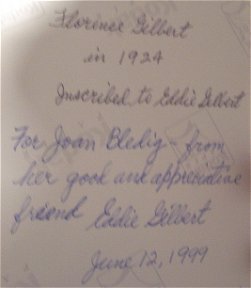 Florence Gilbert
in 1924
Inscribed to Eddie Gilbert
For Joan Bledig - from
her good and appreciative
friend Eddie Gilbert
June 12, 1999